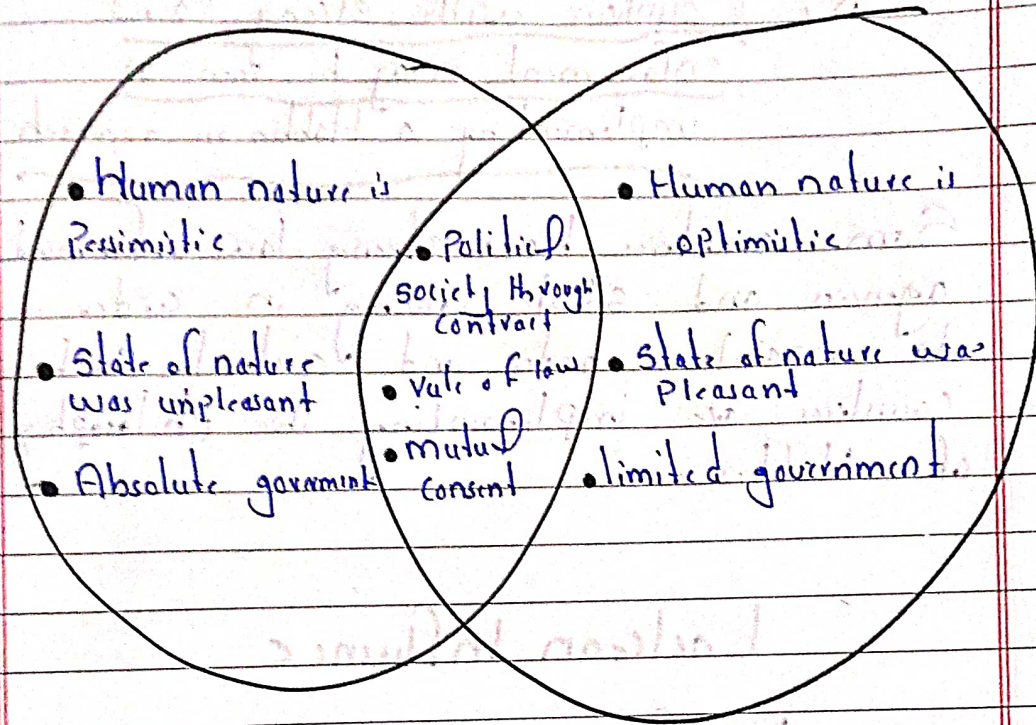 • Human nature is
Pessimistic
• State of nature
was unpleasant
• Absolute government
• Political
society through
contract
• rule of law
• mutual
consent
• Human nature is
optimistic
• State of nature was
Pleasant
• limited government.